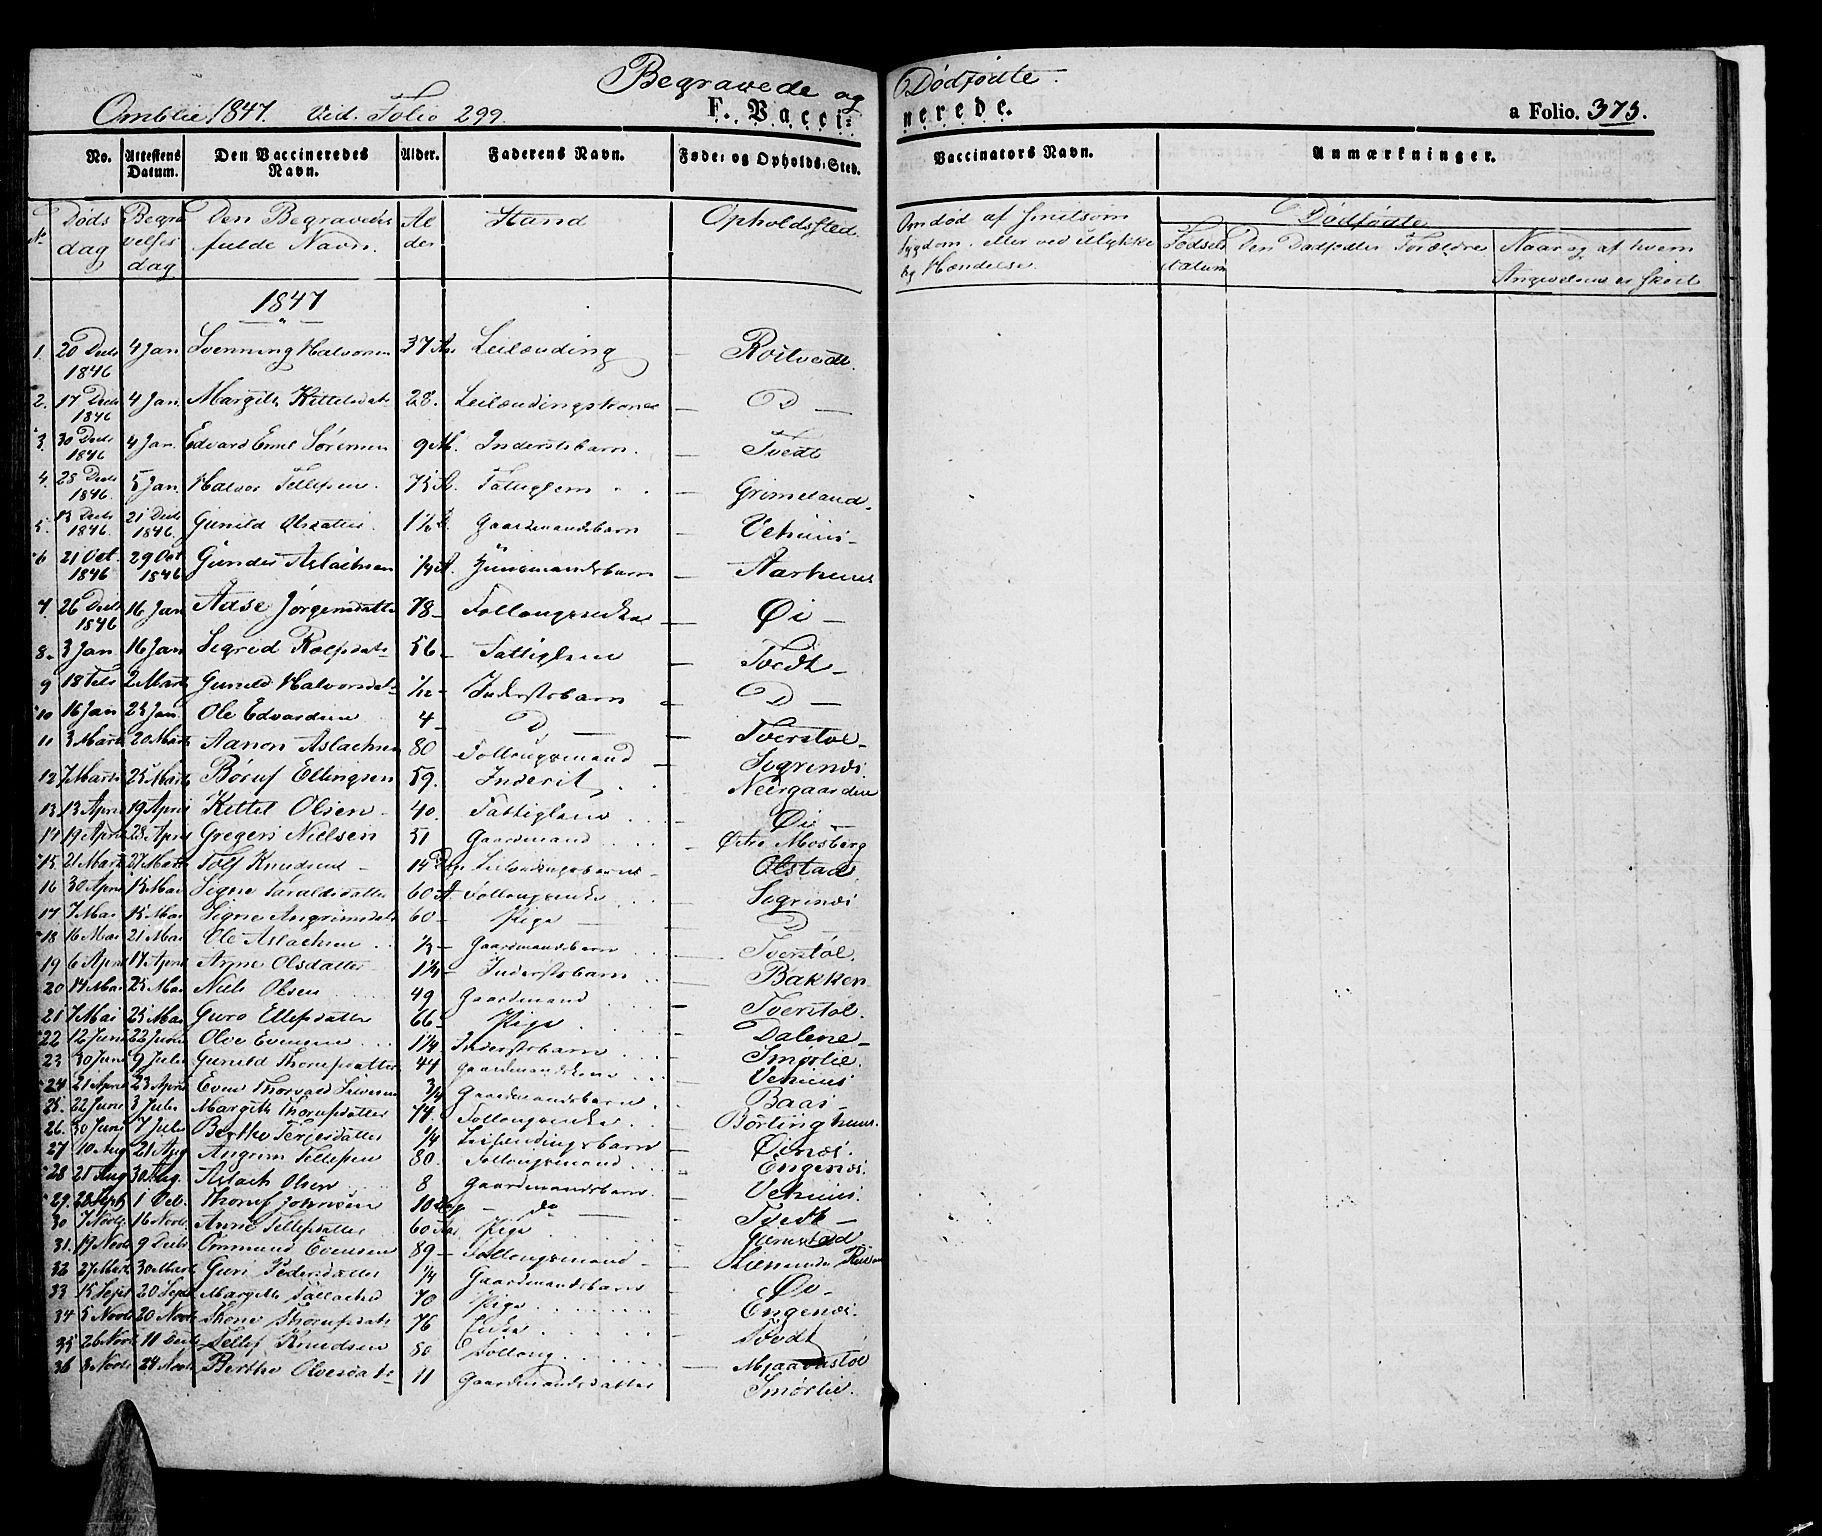 Begravede og Dødfødte.
Omblie 1847. Vid. Folio 299.
F. Vacci- nerede.
a Folio. 375.
No. Attestens Datum. Den Vaccineredes Navn. Alder. Faderens Navn. Føde- og Opholds-Sted. Vaccinators Navn. Anmærkninger.
N. Døds dag Begravelses dag Den Begravedes fulde Navn. Alder Stand Opholdssted Om død af smitsom Sygdom, eller ved ulykkelig Hændelse. Dødfødte
Fødsels datum Den Dødfødtes Forældre Naar og af hvem Angivelsen er skeet
1847
1. 20 Decb 1846 4 Jan Svenning Halvorsen 37 Aar Leilænding Rostvedt.
2. 17 Decb 1846 4 Jan. Margith Kittelsdat 28. Leilændingskone D
3. 30 Decb 1846 4 Jan. Edvard Emil Sørensen 9 M. Inderstsbarn. Tvedt
4. 28 Decb 1846 5 Jan. Halvor Tellefsen. 75 A. Fattiglem Grimeland.
5. 13 Decb 1846. 21 Decb 1846. Gunild Olsdatter. 1½ Gaardmandsbarn Vehuus
6 21 Oct. 1846 29 Oct 1846 Gunder Aslachsen ¼ A. Huusmandsbarn Aarhuus
7. 26 Decb 1846 16 Jan Aase Jørgensdatter 78 Follougsenke Øi
8. 3 Jan. 16 Jan Sigrid Rolfsdat 56 Fattiglem Tvedt
9 18 Feb 2 Marts Gunild Halvorsdat 1/12 Inderstsbarn D
10 16 Jan 23 Jan. Ole Edvardsen 4 D Tverstøl
11 3 Marts 20 Marts Aanon Aslachsen 80 Follougsmand Sogrinæs.
12 7 Marts 25 Marts Børuf Ellingsen 59. Inderst Neergaarden
13 13 April 19 April Kittel Olsen 40. Fattiglem Øi
14 19 April 28 April Gregers Nielsen 51 Gaardmand Østre Mosberg
15 21 Marts 27 Marts Tolf Knudsen 14 Dage Leilændingsbarn Olstad
16 30 April 15 Mai Signe Taraldsdatter 60 A. Follougsenke Sogrinæs
17 7 Mai 15 Mai Signe Angrimsdat 60 Pige D
18 16 Mai 21 Mai Ole Aslachsen ½ Gaardmandsbarn Tverstøl.
19 6 April 17 April Arne Olsdatter 1¼ Inderstsbarn Bakken
20 14 Mai 25 Mai Niels Olsen 49 Gaardmand Tverstøl.
21 7 Mai 25 Mai Guro Ellefsdatter 66 Pige Dalene
22 12 Juni 22 Juni Olve Evensen 1¼ Inderstsbarn Smørlie.
23 30 Juni 9 Juli Gunild Thorufsdatter 44 Gaardmandskone Vehuus
24 21 April 23 April Even Thorvald ¾ Gaardmandsbarn Baas
25. 22 Juni 3 Juli Margith Thorufsdatter 74. Follougsenke Børlinghuus
26. 30 Juni 7 Juli Berthe Terjesdatter ¼ Leilændingsbarn Øinæs.
27 10 Aug 21 Aug Angrim Tellefsen 80. Follougsmand Engenæs.
28 21 Aug 30 Aug. Aslach Olsen 8 Gaardmandsbarn Vehuus.
29. 28 Septb 1 Oct. Thoruf Johnsen 10 Dage do Tvedt
30 7 Novb 16 Novb. Anne Tellefsdatter 60 Aar Pige
31. 19 Novb 9 Decb Ommund Evensen 89 Follougsmand
32 27 Marts 30 Marts Guri Pedersdatter ¼ Gaardmandsbarn Øi
33 15 Sept 20 Sept Margith 70 Pige Engenæs
34 5 Novb 20 Novb Thorufsdatt 76 Enke Tvedt
35 26 Novb 11 Decb Tellef Knudsen 80 Folloug Mjaavastøl
36 8 Novb 24 Novb Berthe Olvesdatt 11 Gaardmandsdatter Smørlie.